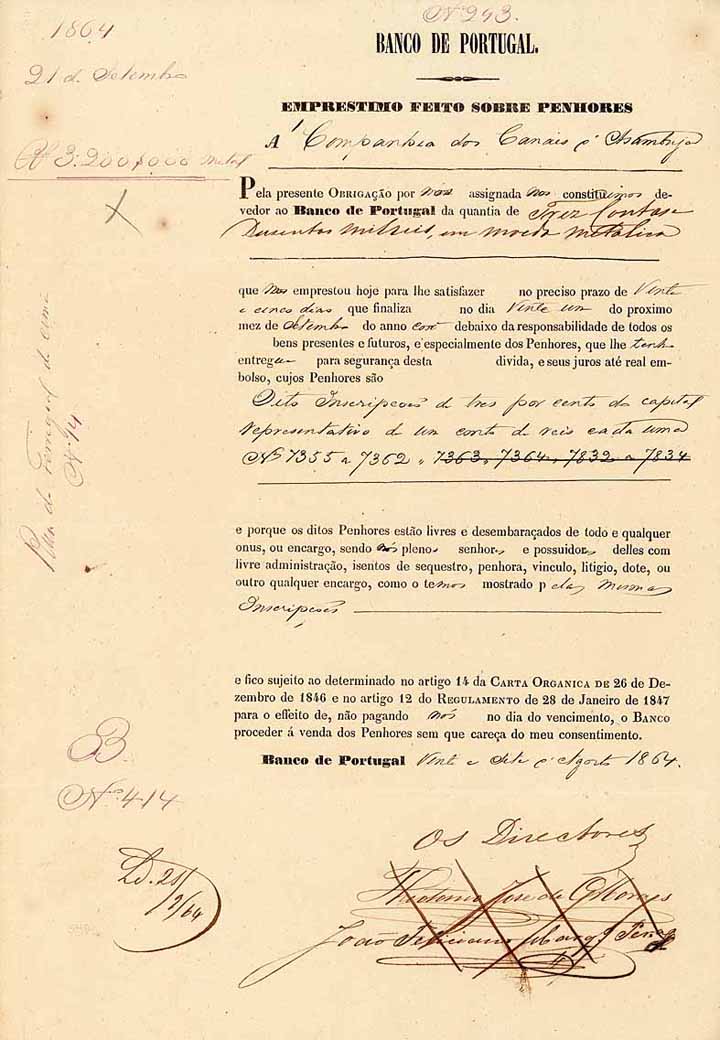 Nº 243.
1864
21 d. Setembro
BANCO DE PORTUGAL.
EMPRESTIMO FEITO SOBRE PENHORES
A' Companhia dos Canaes d'Asambuja
Rs 3:200,000 metal
Pela presente OBRIGAÇÃO por nós assignada nos constituimos de-
vedor ao Banco de Portugal da quantia de Trez Contos e
Dusentos milreis, em moeda metalica
que nos emprestou hoje para lhe satisfazer no preciso prazo de Vinte
e cinco dias que finaliza no dia Vinte um do proximo
mez de Setembro do anno corr debaixo da responsabilidade de todos os
bens presentes e futuros, e especialmente dos Penhores, que lhe
entregue para segurança desta divida, e seus juros até real em-
bolso, cujos Penhores são
Oito Inscripções de tres por cento do capital
representativo de um conto de reis cada uma
Nos 7355 a 7362, 7363, 7364, 7832 a 7834
Nº 14
e porque os ditos Penhores estão livres e desembaraçados de todo e qualquer
onus, ou encargo, sendo nós plenos senhores e possuidores delles com
livre administração, isentos de sequestro, penhora, vinculo, litigio, dote, ou
outro qualquer encargo, como o temos mostrado pelas mesmas
Inscripções
e fico sujeito ao determinado no artigo 14 da CARTA ORGANICA DE 26 de De-
zembro de 1846 e no artigo 12 do REGULAMENTO de 28 de Janeiro de 1847
para o effeito de, não pagando nós no dia do vencimento, o BANCO
proceder á venda dos Penhores sem que careça do meu consentimento.
Banco de Portugal Vinte e Sete d'Agosto 1864.
B
Nº 414
Os Directores
João Feliciano